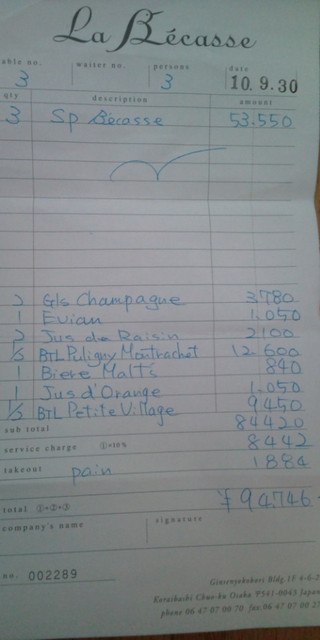 La Bécasse
table no. waiter no. persons date
3 3 10. 9. 30
qty description amount
3 Sp Bécasse 53.550
2 Gls Champagne 3780
1 Evian 1.050
2 Jus de Raisin 2100
1/2 BTL Puligny Montrachet 12.600
1 Biere Malti 840
1 Jus d'Orange 1.050
1/2 BTL Petite Village 9450
sub total 84420
service charge ①×10% 8442
takeout pain 1884
total ①+②+③ ¥94746
company's name signature
no. 002289
Bldg 1F
Chuo-ku Osaka 〒541-0043 Japan
phone 06 47 07 00 70 fax 06 47 07 00